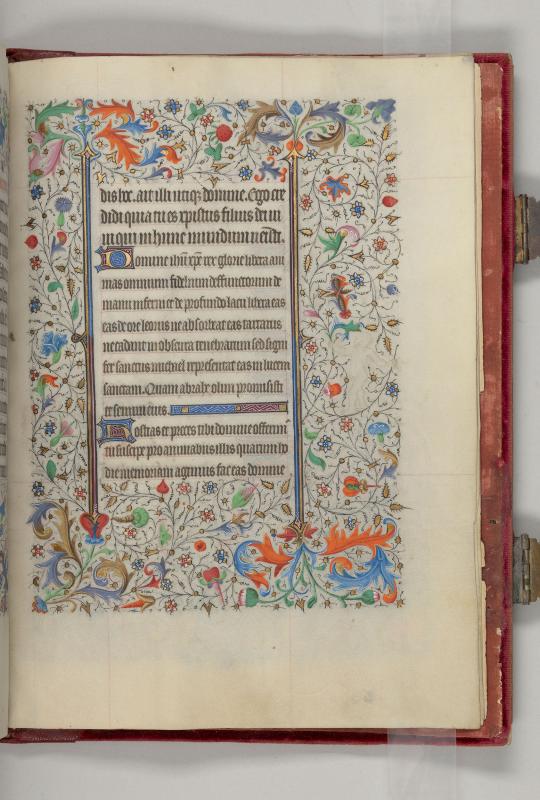 dis hoc. ait illi utiq3 domine. Ego cre
didi quia tu es xpristus filius dei ui
ui qui in hunc mundum uenisti.
Domine ihu xpe rex glorie libera ani
mas omnium fidelium deffunctorum de
manu inferni et de profundo lacu libera eas
eas de ore leonis ne absorbeat eas tartarus
ne cadant in obscura tenebrarum sed signi
fer sanctus michael representet eas in lucem
sanctam. Quam abrahe olim promisisti
et semini eius.
Hostias et preces tibi domine offerim
tu suscipe pro animabus illis quarum ho
die memoriam agimus fac eas domine